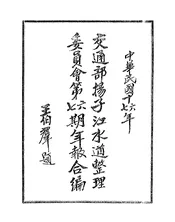 中華民國十六七年
交通部揚子江水道整理
委員會第六七期年報合編
王伯羣題